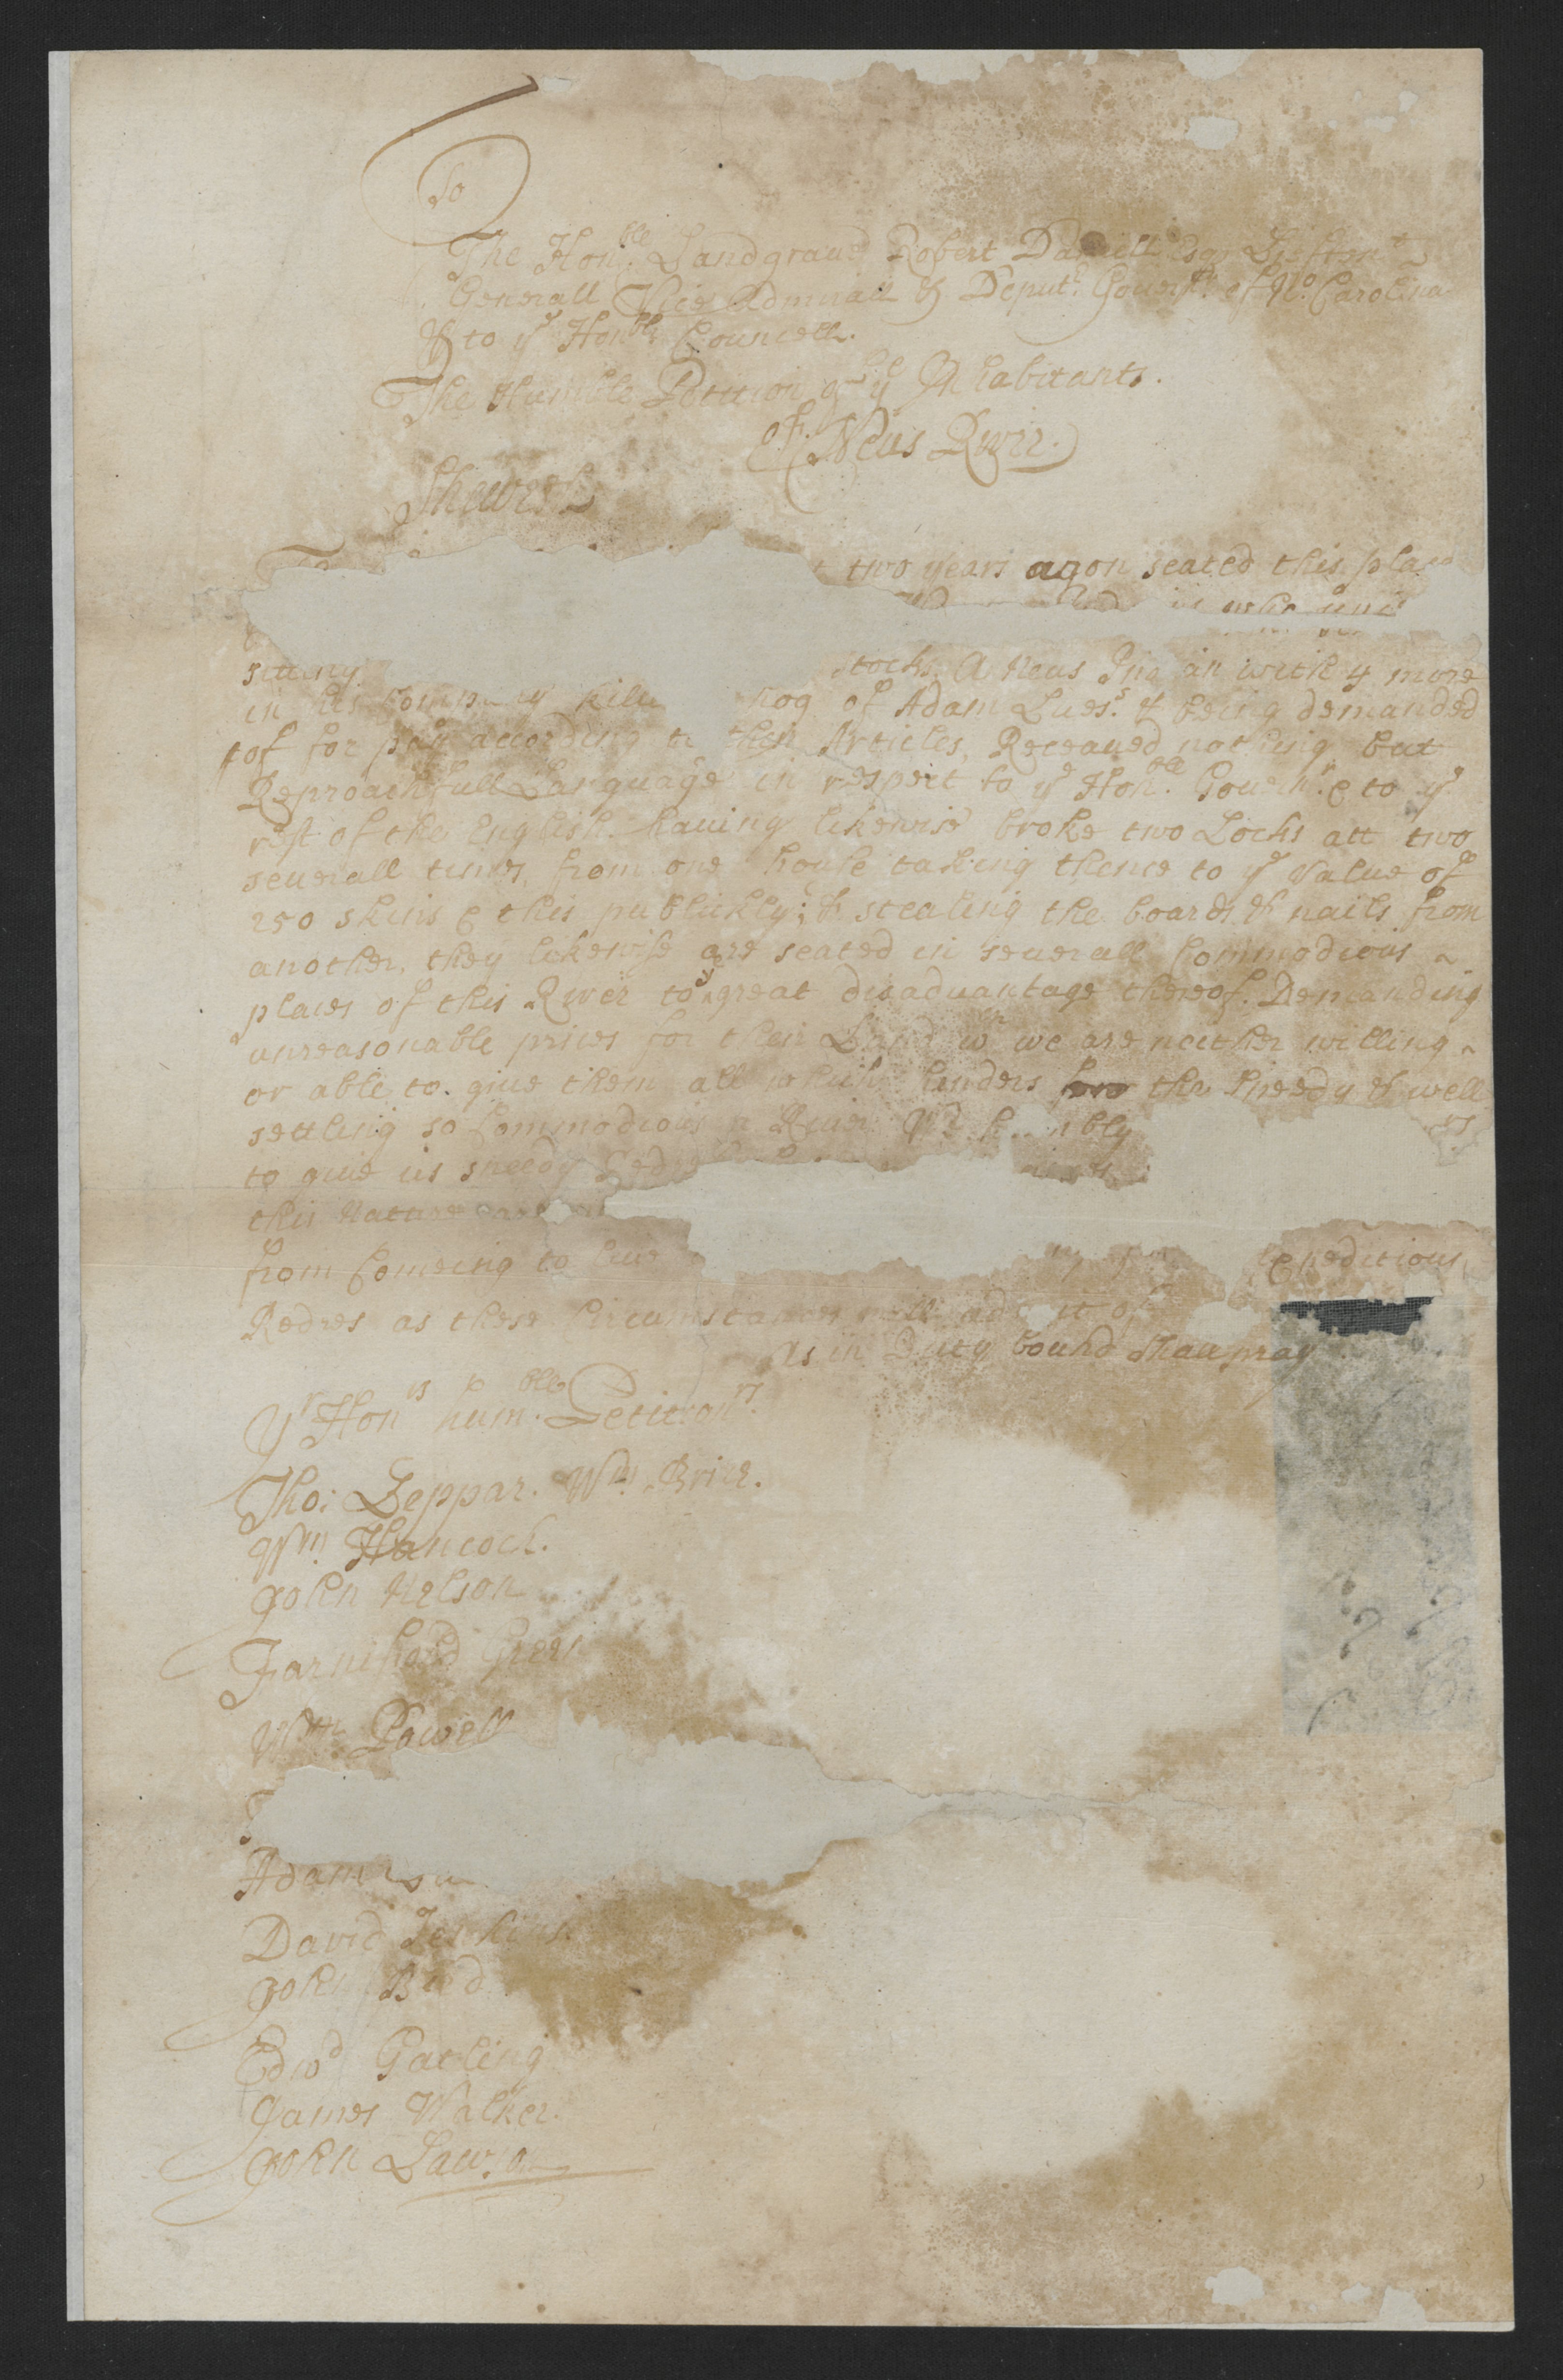 To
The Hon:ble Landgraue Robert Daniell Esqr Lieften.t
Generall Vice Admirall & Deput.e Gouern.r of No. Carolina
& to ye Hon.ble Councell.
The Humble Petition of ye Inhabitants.
Of Neus River.
Sheweth
two years agon seated this place
who
sitting stocks. A Neus Indian with 4 more
in his company hog of Adam Lues.s & being demanded
of for pay according to their Articles, Receaued nothing but
Reproachfull Language in respect to ye Hon.ble Gouern.r & to ye
rest of the English. hauing likewise broke two Locks att two
seuerall times, from one house taking thence to ye Value of
250 skins & this publickly; & stealing the boards & nails from
another. they likewise are seated in seuerall Commodious
places of this River to ye great disaduantage thereof. Demanding
unreasonable prices for their Land wch we are neither willing
or able to giue them all which hinders the speedy & well
settling so Commodious a River Wee humbly
to giue us speedy Redress
this Nature
from Comeing to liue Expeditious
Redres as these Circumstances will admit of
As in Duty bound shall pray
Yr Honrs hum.ble Petitionrs.
Tho: Leppar. Wm. Brice.
Wm. Hancock.
John Nelson
Farnifold Green
Wm. Powell
Adam
David Jenkins
John Bird
Edwd Gatling
James Walker.
John Lawson